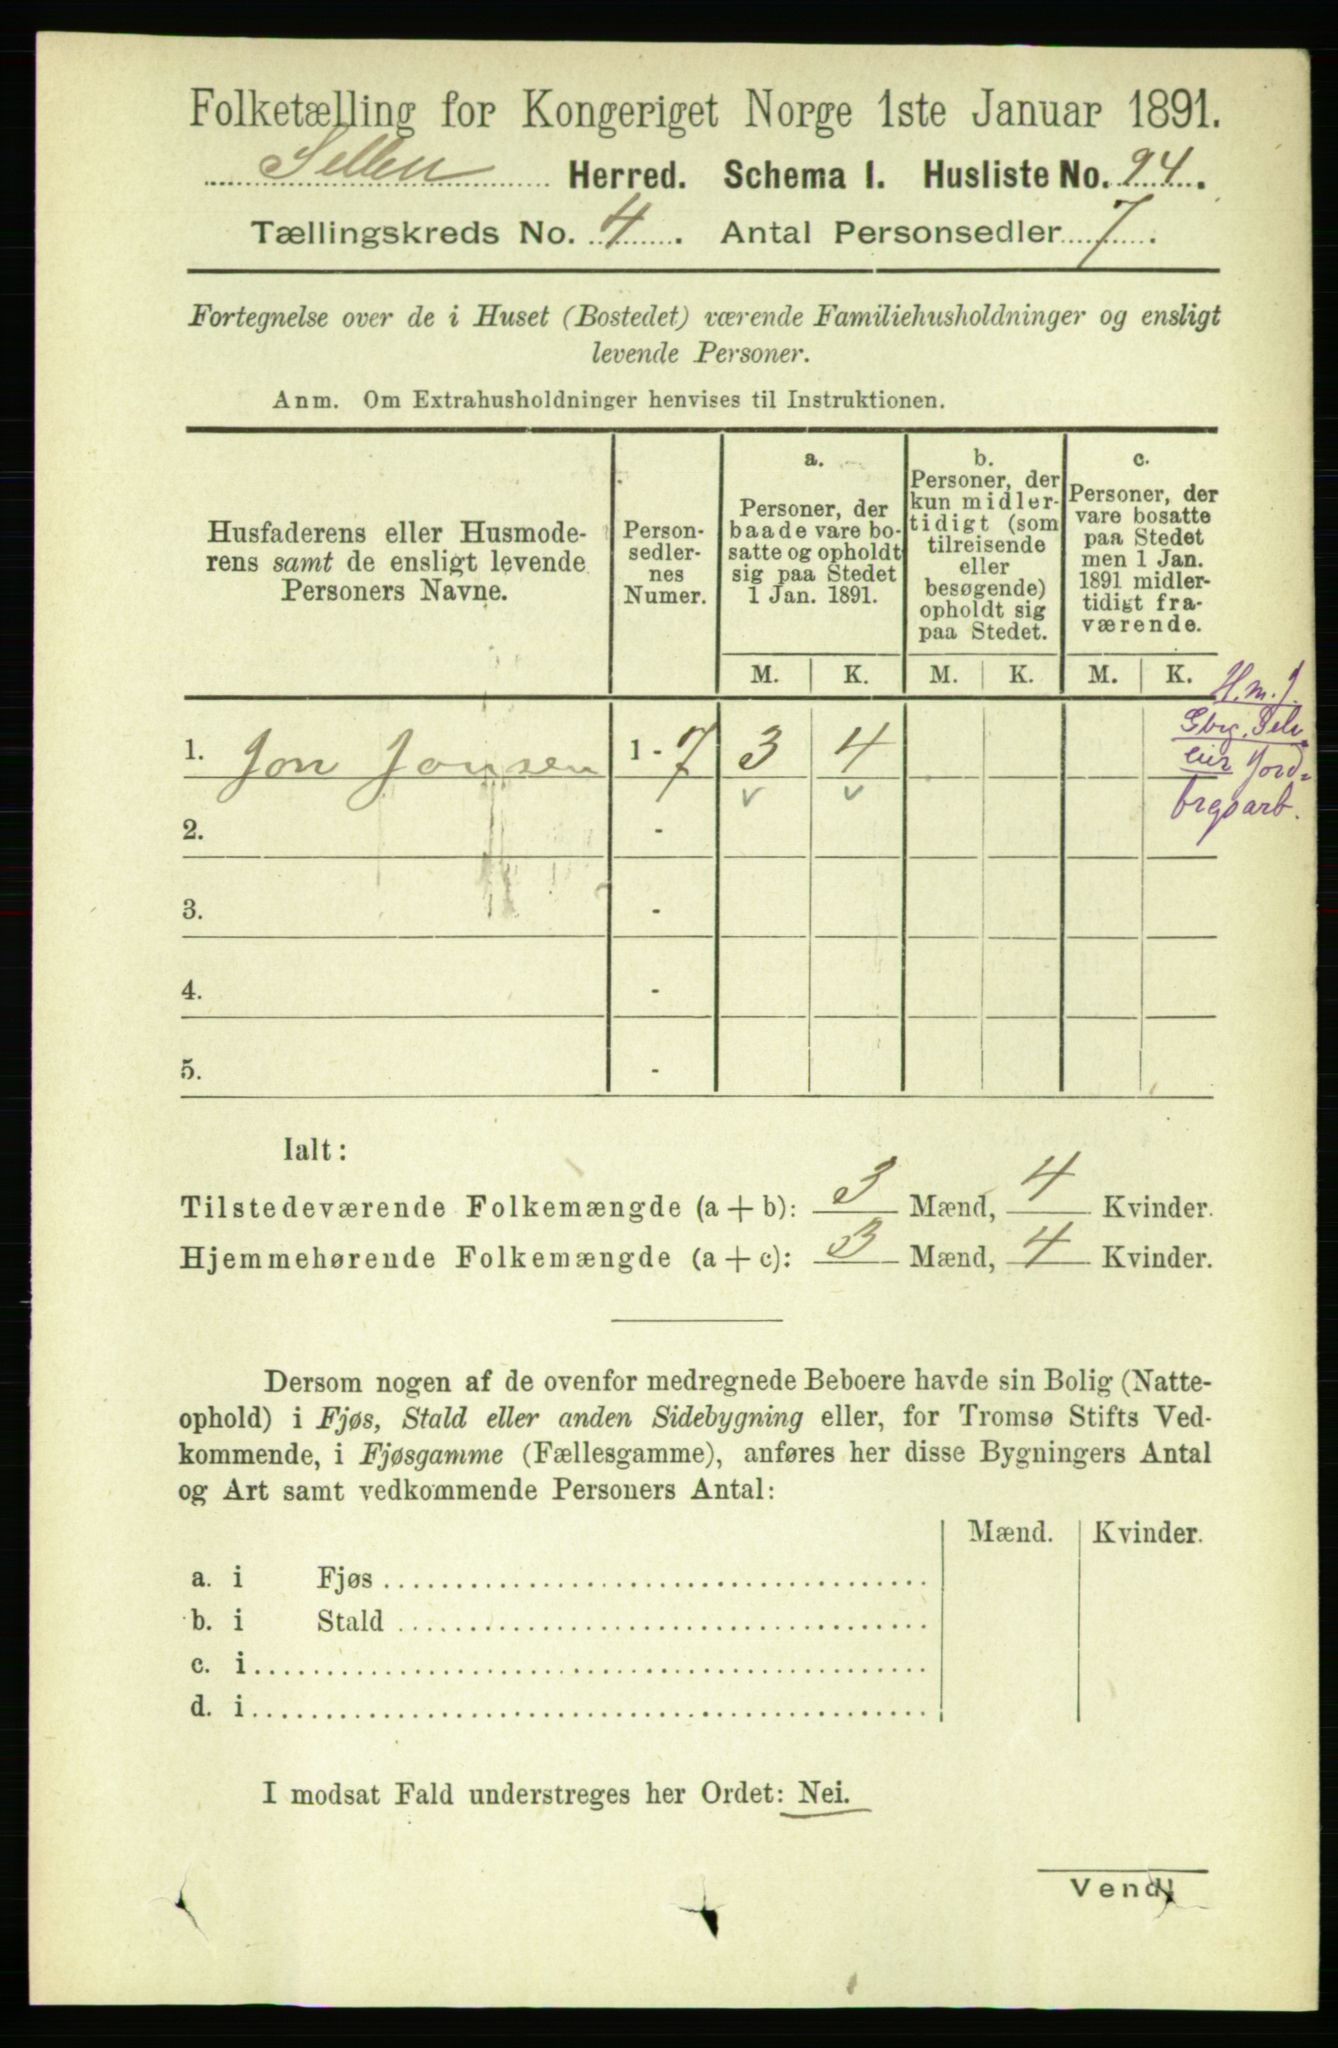 Folketælling for Kongeriget Norge 1ste Januar 1891.
Herred. Schema 1. Husliste No. 94.
Tællingskreds No. 4. Antal Personsedler 7.
Fortegnelse over de i Huset (Bostedet) værende Familiehusholdninger og ensligt
levende Personer.
Anm. Om Extrahusholdninger henvises til Instruktionen.
Husfaderens eller Husmode-
rens samt de ensligt levende
Personers Navne.
Person-
sedler-
nes
Numer.
a.
Personer, der
baade vare bo-
satte og opholdt
sig paa Stedet
1 Jan. 1891.
b.
Personer, der
kun midler-
tidigt (som
tilreisende
eller
besøgende)
opholdt sig
paa Stedet.
c.
Personer, der
vare bosatte
paa Stedet
men 1 Jan.
1891 midler-
tidigt fra-
værende.
M. K. M. K. M. K.
H.m.J.
Gbr. Selv
eier Jord-
brgsarb.
1. Jon Jonsen 1 - 7 3 4
2. -
3. -
4. -
5. -
Ialt:
Tilstedeværende Folkemængde (a + b): 3 Mænd, 4 Kvinder.
Hjemmehørende Folkemængde (a + c): 3 Mænd, 4 Kvinder.
Dersom nogen af de ovenfor medregnede Beboere havde sin Bolig (Natte-
ophold) i Fjøs, Stald eller anden Sidebygning eller, for Tromsø Stifts Ved-
kommende, i Fjøsgamme (Fællesgamme), anføres her disse Bygningers Antal
og Art samt vedkommende Personers Antal:
Mænd. Kvinder.
a. i Fjøs
b. i Stald
c. i
d. i
I modsat Fald understreges her Ordet: Nei.
Vend!